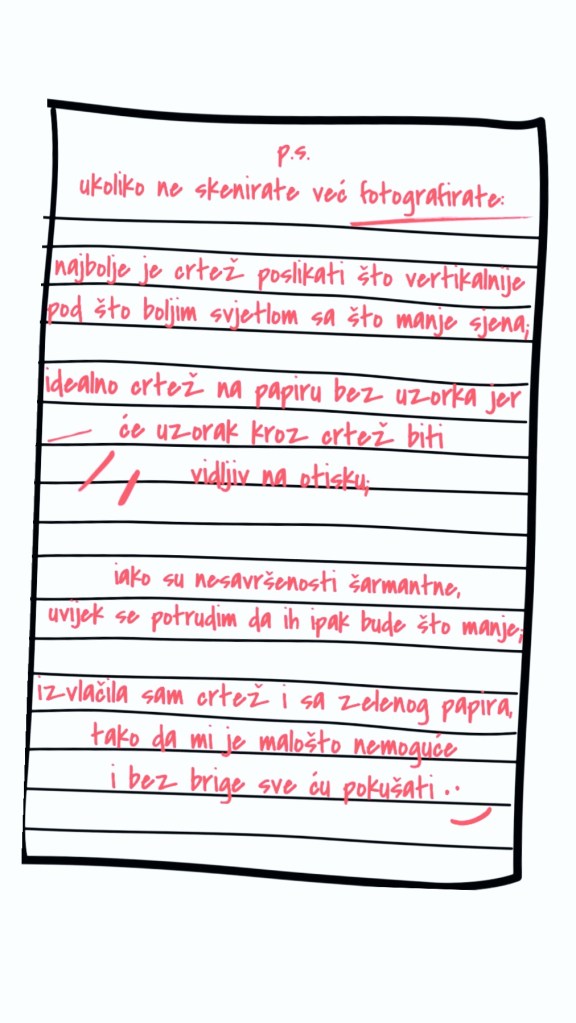 p.s.
ukoliko ne skenirate već fotografirate:
najbolje je crtež poslikati što vertikalnije
pod što boljim svjetlom sa što manje sjena;
idealno crtež na papiru bez uzorka jer
će uzorak kroz crtež biti
vidljiv na otisku;
iako su nesavršenosti šarmantne,
uvijek se potrudim da ih ipak bude što manje;
izvlačila sam crtež i sa zelenog papira,
tako da mi je malošto nemoguće
i bez brige sve ću pokušati ..